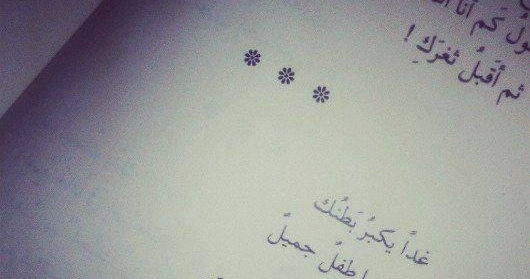 كم أنا
ثم أقبلُ ثغرَكِ !
غدًا يكبرُ بَطنُكَ
طفلٌ جميلٌ